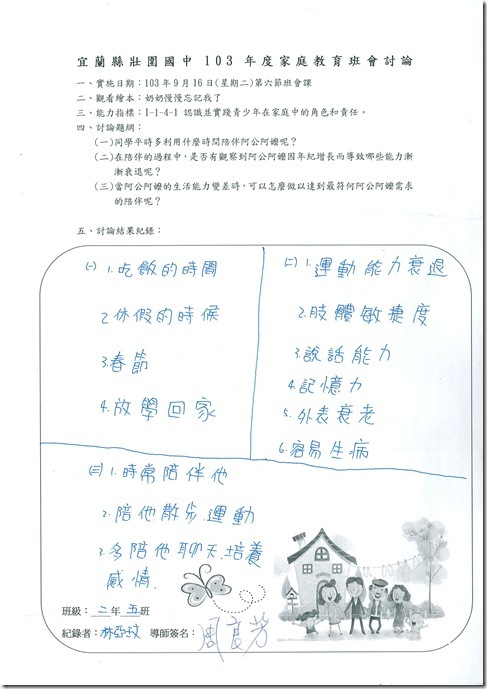 宜蘭縣壯圍國中 103 年度家庭教育班會討論
一、實施日期：103年9月16日(星期二)第六節班會課
二、觀看繪本：奶奶慢慢忘記我了
三、能力指標：1-1-4-1 認識並實踐青少年在家庭中的角色和責任。
四、討論題綱：
(一)同學平時多利用什麼時間陪伴阿公阿嬤呢？
(二)在陪伴的過程中，是否有觀察到阿公阿嬤因年紀增長而導致哪些能力漸
漸衰退呢？
(三)當阿公阿嬤的生活能力變差時，可以怎麼做以達到最符何阿公阿嬤需求
的陪伴呢？
五、討論結果紀錄：
(一) 1.吃飯的時間
2.休假的時候
3.春節
4.放學回家
(二) 1.運動能力衰退
2.肢體敏捷度
3.說話能力
4.記憶力
5.外表衰老
6.容易生病
(三) 1.時常陪伴他
2.陪他散步.運動
3.多陪他聊天.培養
感情.
班級：二年五班
紀錄者：林亞玟 導師簽名：周